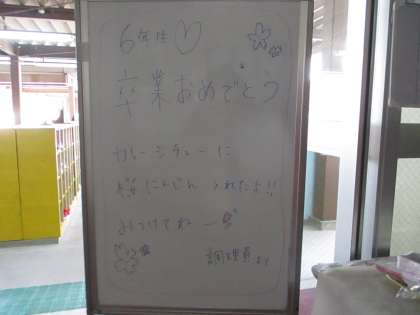 6年生♡
卒業おめでとう
カレーシチューに
桜にんじん 入れたよ!!
みつけてね
調理員より